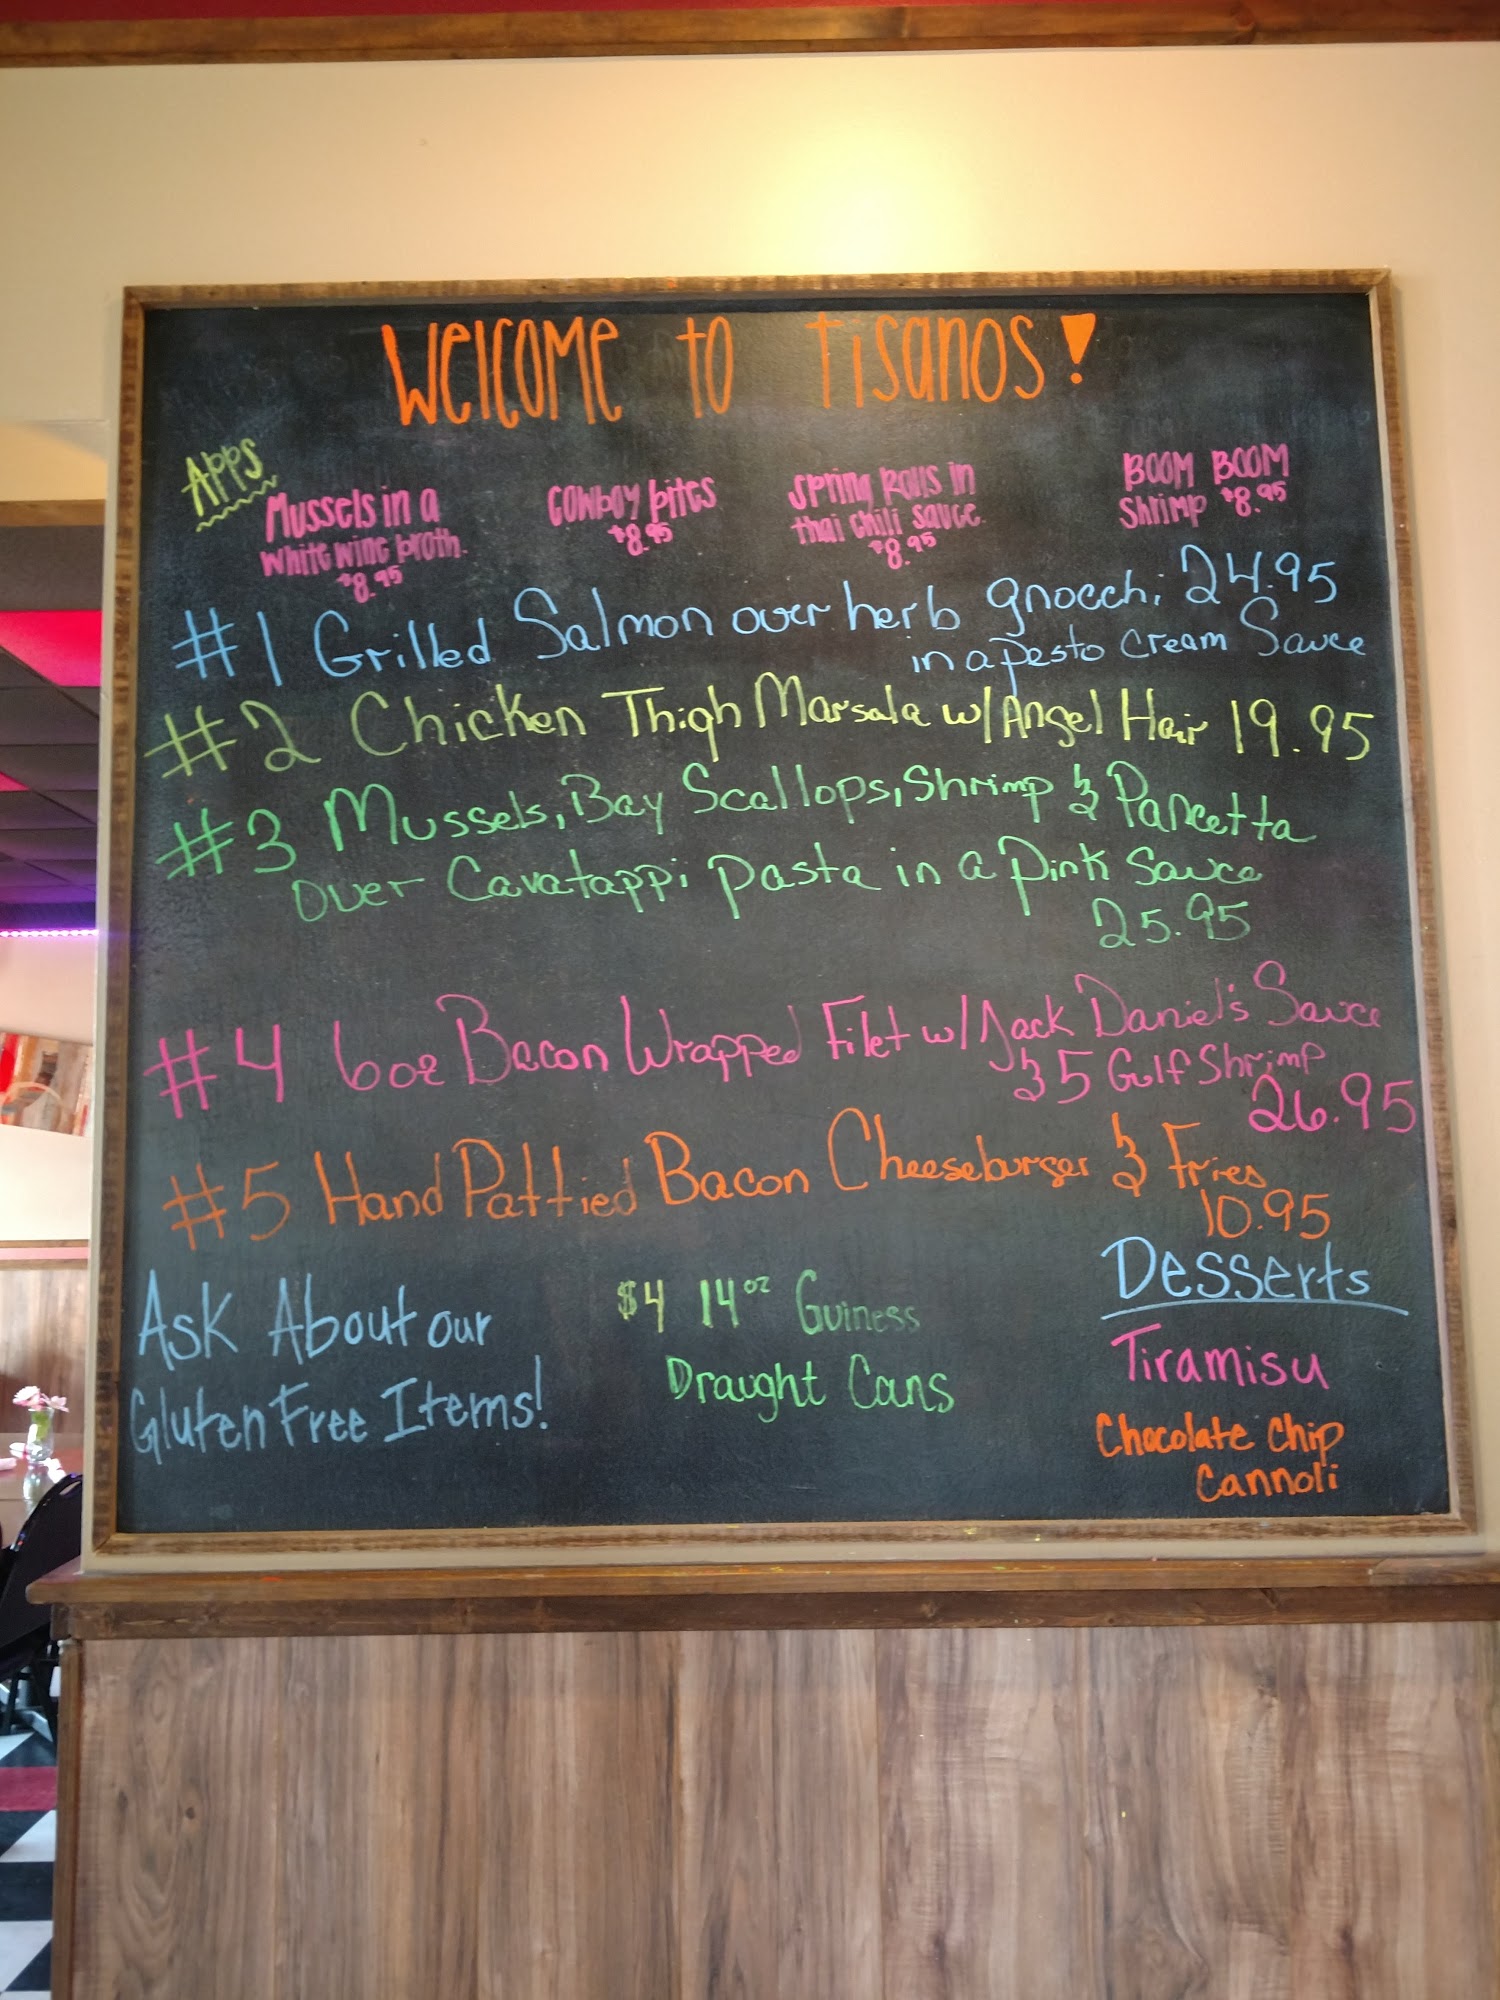 Welcome to Tisanos!
Apps
Mussels in a
white wine broth.
$8.95
Cowboy bites
$8.95
Spring Rolls in
thai chili sauce.
$8.95
BOOM BOOM
Shrimp $8.95
#1 Grilled Salmon over herb gnocchi 24.95
in a pesto cream Sauce
#2 Chicken Thigh Marsala w/ Angel Hair 19.95
#3 Mussels, Bay Scallops, Shrimp & Pancetta
over Cavatappi pasta in a pink sauce
25.95
#4 6oz Bacon Wrapped Filet w/ Jack Daniel's Sauce
& 5 Gulf Shrimp
26.95
#5 Hand Pattied Bacon Cheeseburger & Fries
10.95
Ask About our
Gluten Free Items!
$4 14oz Guiness
Draught Cans
Desserts
Tiramisu
Chocolate Chip
Cannoli